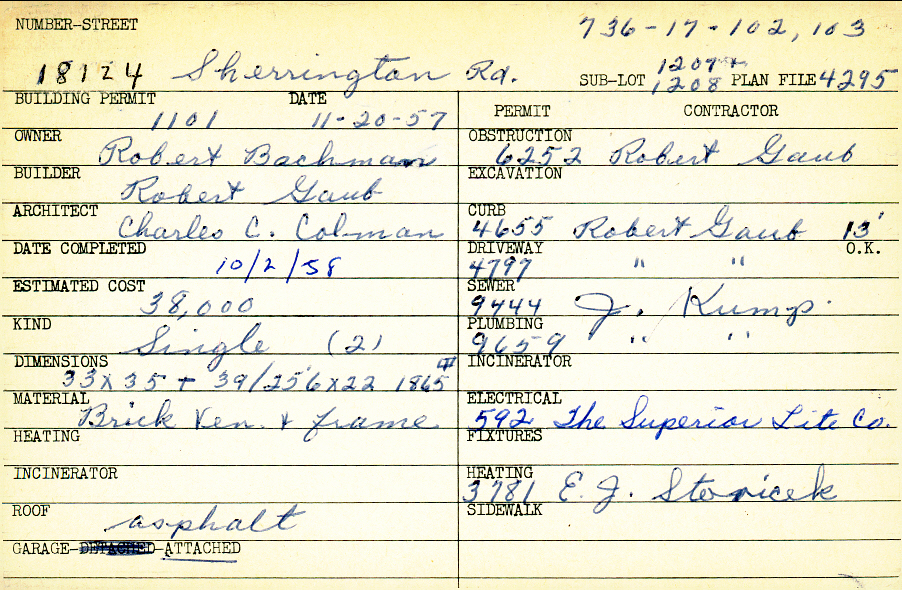 NUMBER-STREET 736-17-102, 103
18124 Sherrington Rd. SUB-LOT 1207+ 1208 PLAN FILE 4295
BUILDING PERMIT DATE PERMIT CONTRACTOR
1101 11-20-57
OWNER Robert Bachman OBSTRUCTION 6252 Robert Gaub
BUILDER Robert Gaub EXCAVATION
ARCHITECT Charles C. Colman CURB 4655 Robert Gaub 13' O.K.
DATE COMPLETED 10/2/58 DRIVEWAY 4797 " "
ESTIMATED COST 38,000 SEWER 9444 J. Kump.
KIND Single (2) PLUMBING 9659 " "
DIMENSIONS 33x35 + 39/25'6x22 1865 INCINERATOR
MATERIAL Brick Ven. & frame ELECTRICAL 592 The Superior Lite Co.
HEATING FIXTURES
INCINERATOR HEATING 3781 E. J. Stovicek
ROOF asphalt SIDEWALK
GARAGE-DETACHED-ATTACHED
103